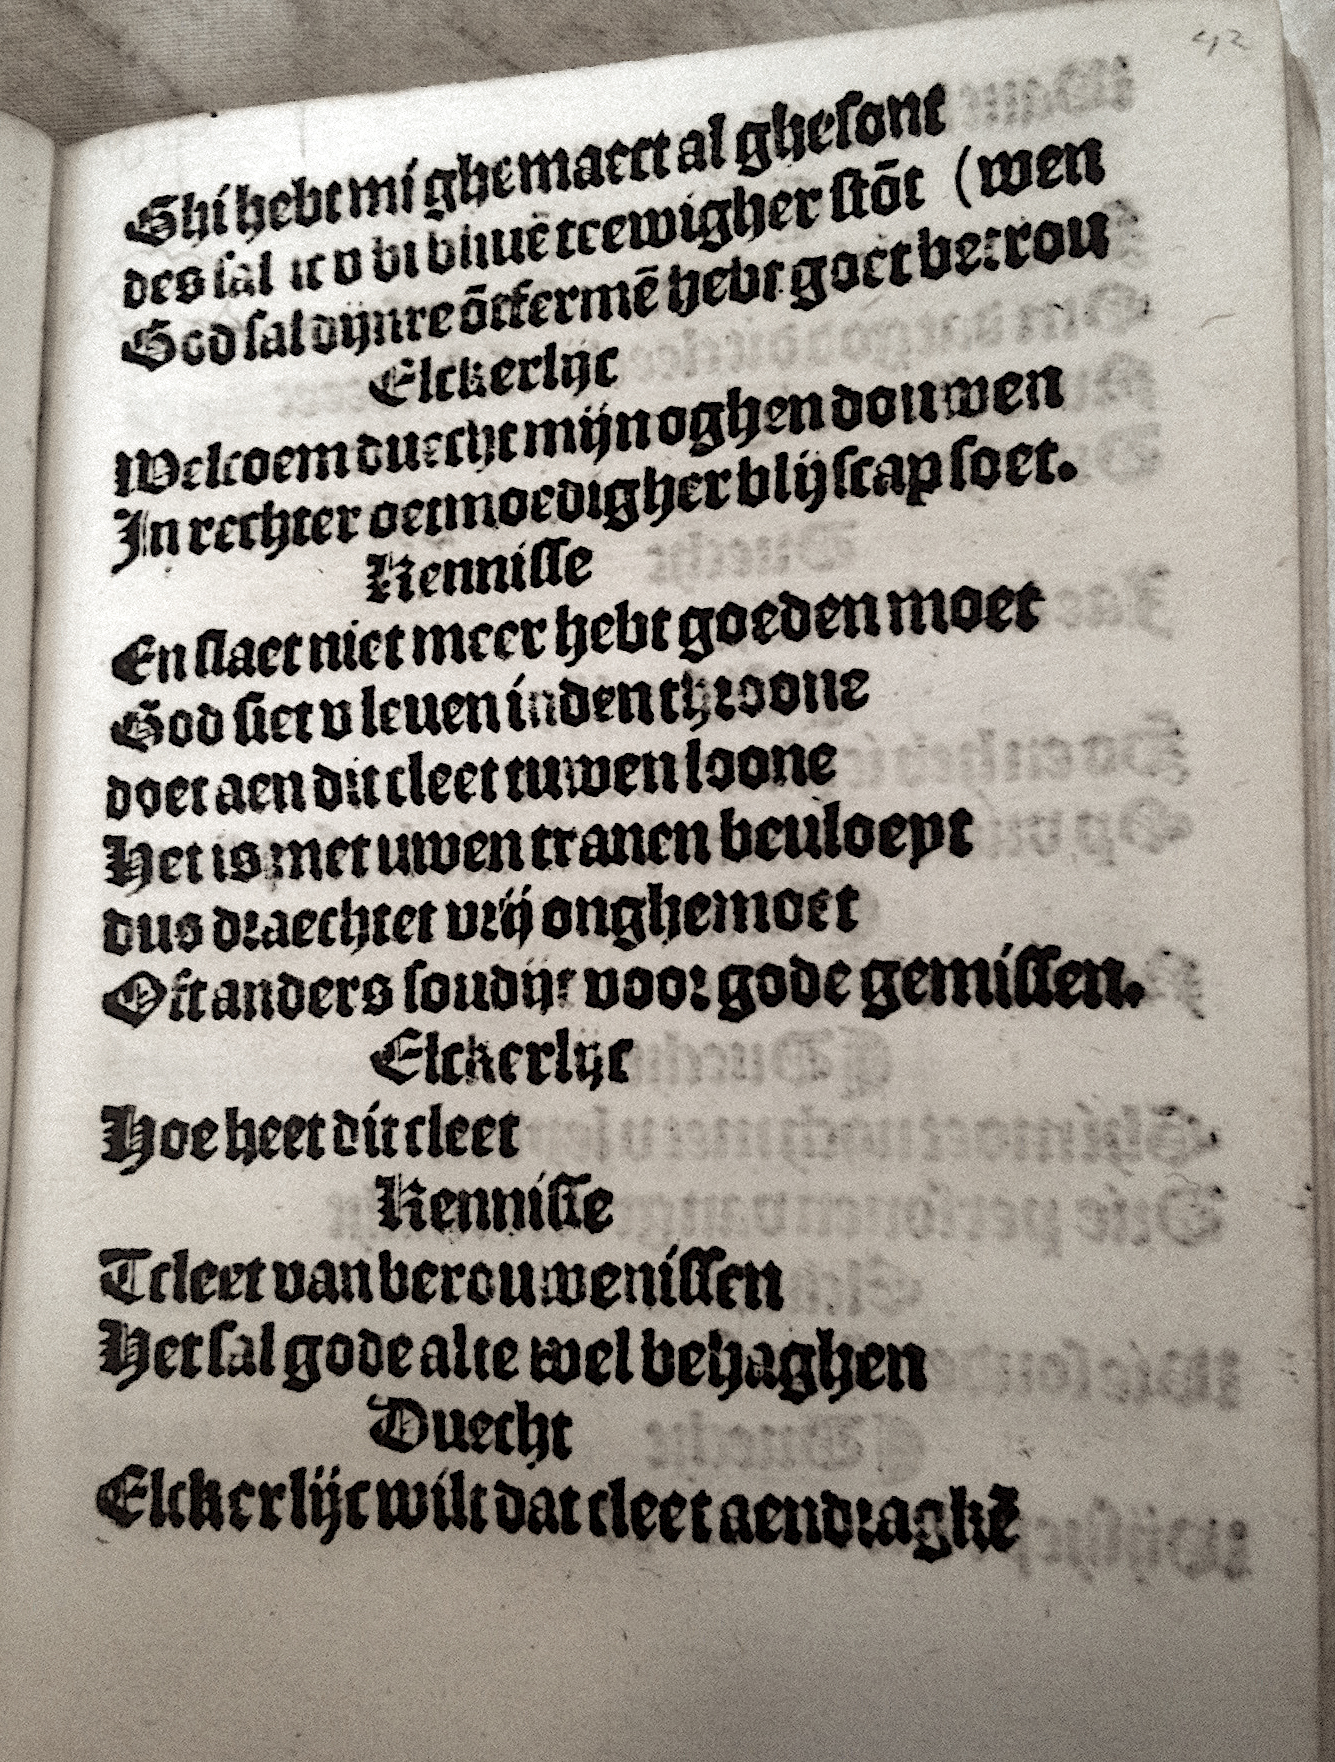 42
Ghi hebt mi ghemaect al ghesont
des sal ic v bi bliuē teewigher stōt (wen
God sal dijnre ōtfermē hebt goet betrou
Elckerlijc
Welcoem duecht mijn oghen douwen
In rechter oetmoedigher blijscap soet.
Kennisse
En slaet niet meer hebt goeden moet
God siet v leuen inden throone
doet aen dit cleet tuwen loone
Het is met uwen tranen beuloeyt
dus draechtet vrij onghemoet
Oft anders soudijt voor gode gemissen.
Elckerlijc
Hoe heet dit cleet
Kennisse
Tcleet van berouwenissen
Het sal gode alte wel behaghen
Duecht
Elckerlijc wilt dat cleet aendraghē